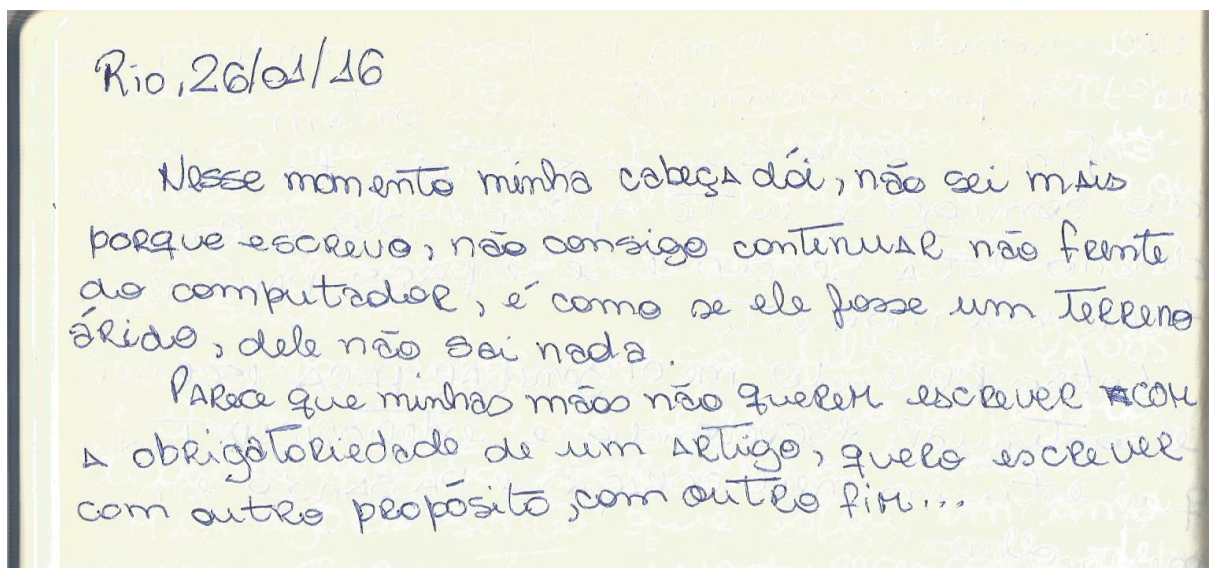 Rio, 26/01/16
Nesse momento minha cabeça dói, não sei mais
porque escrevo, não consigo continuar não frente
ao computador, é como se ele fosse um terreno
árido, dele não sai nada.
Parece que minhas mãos não querem escrever com
a obrigatoriedade de um artigo, quero escrever
com outro propósito, com outro fim...